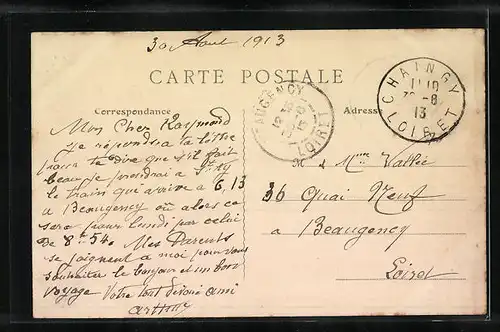 30 Aout 1913
CARTE POSTALE
Correspondance
Adresse
CHAINGY
13
LOIRET
BEAUGENCY
LOIRET
Mon Cher Raymond
je répondrai ta lettre
pour te dire que s'il fait
beau je prendrai a
le train qui arrive a 6, 13
a Beaugency ou alors ce
sera pour lundi par celui
De 8h 54. Mes Parents
se joignent a moi pour vous
souhaiter le bonjour et un bon
voyage Votre tout dévoué ami
Arthur
M Mme Vallée
36 Quai Neuf
a Beaugency
Loiret